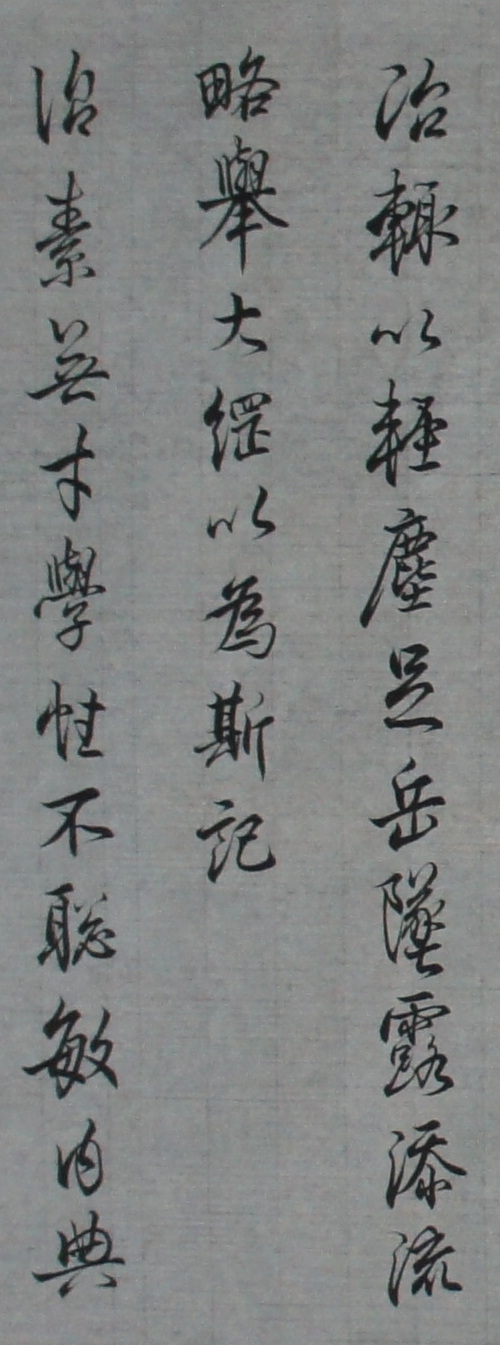 冶輒以輕塵足岳墜露添流
略舉大綱以為斯記
治素無才學性不聰敏內典